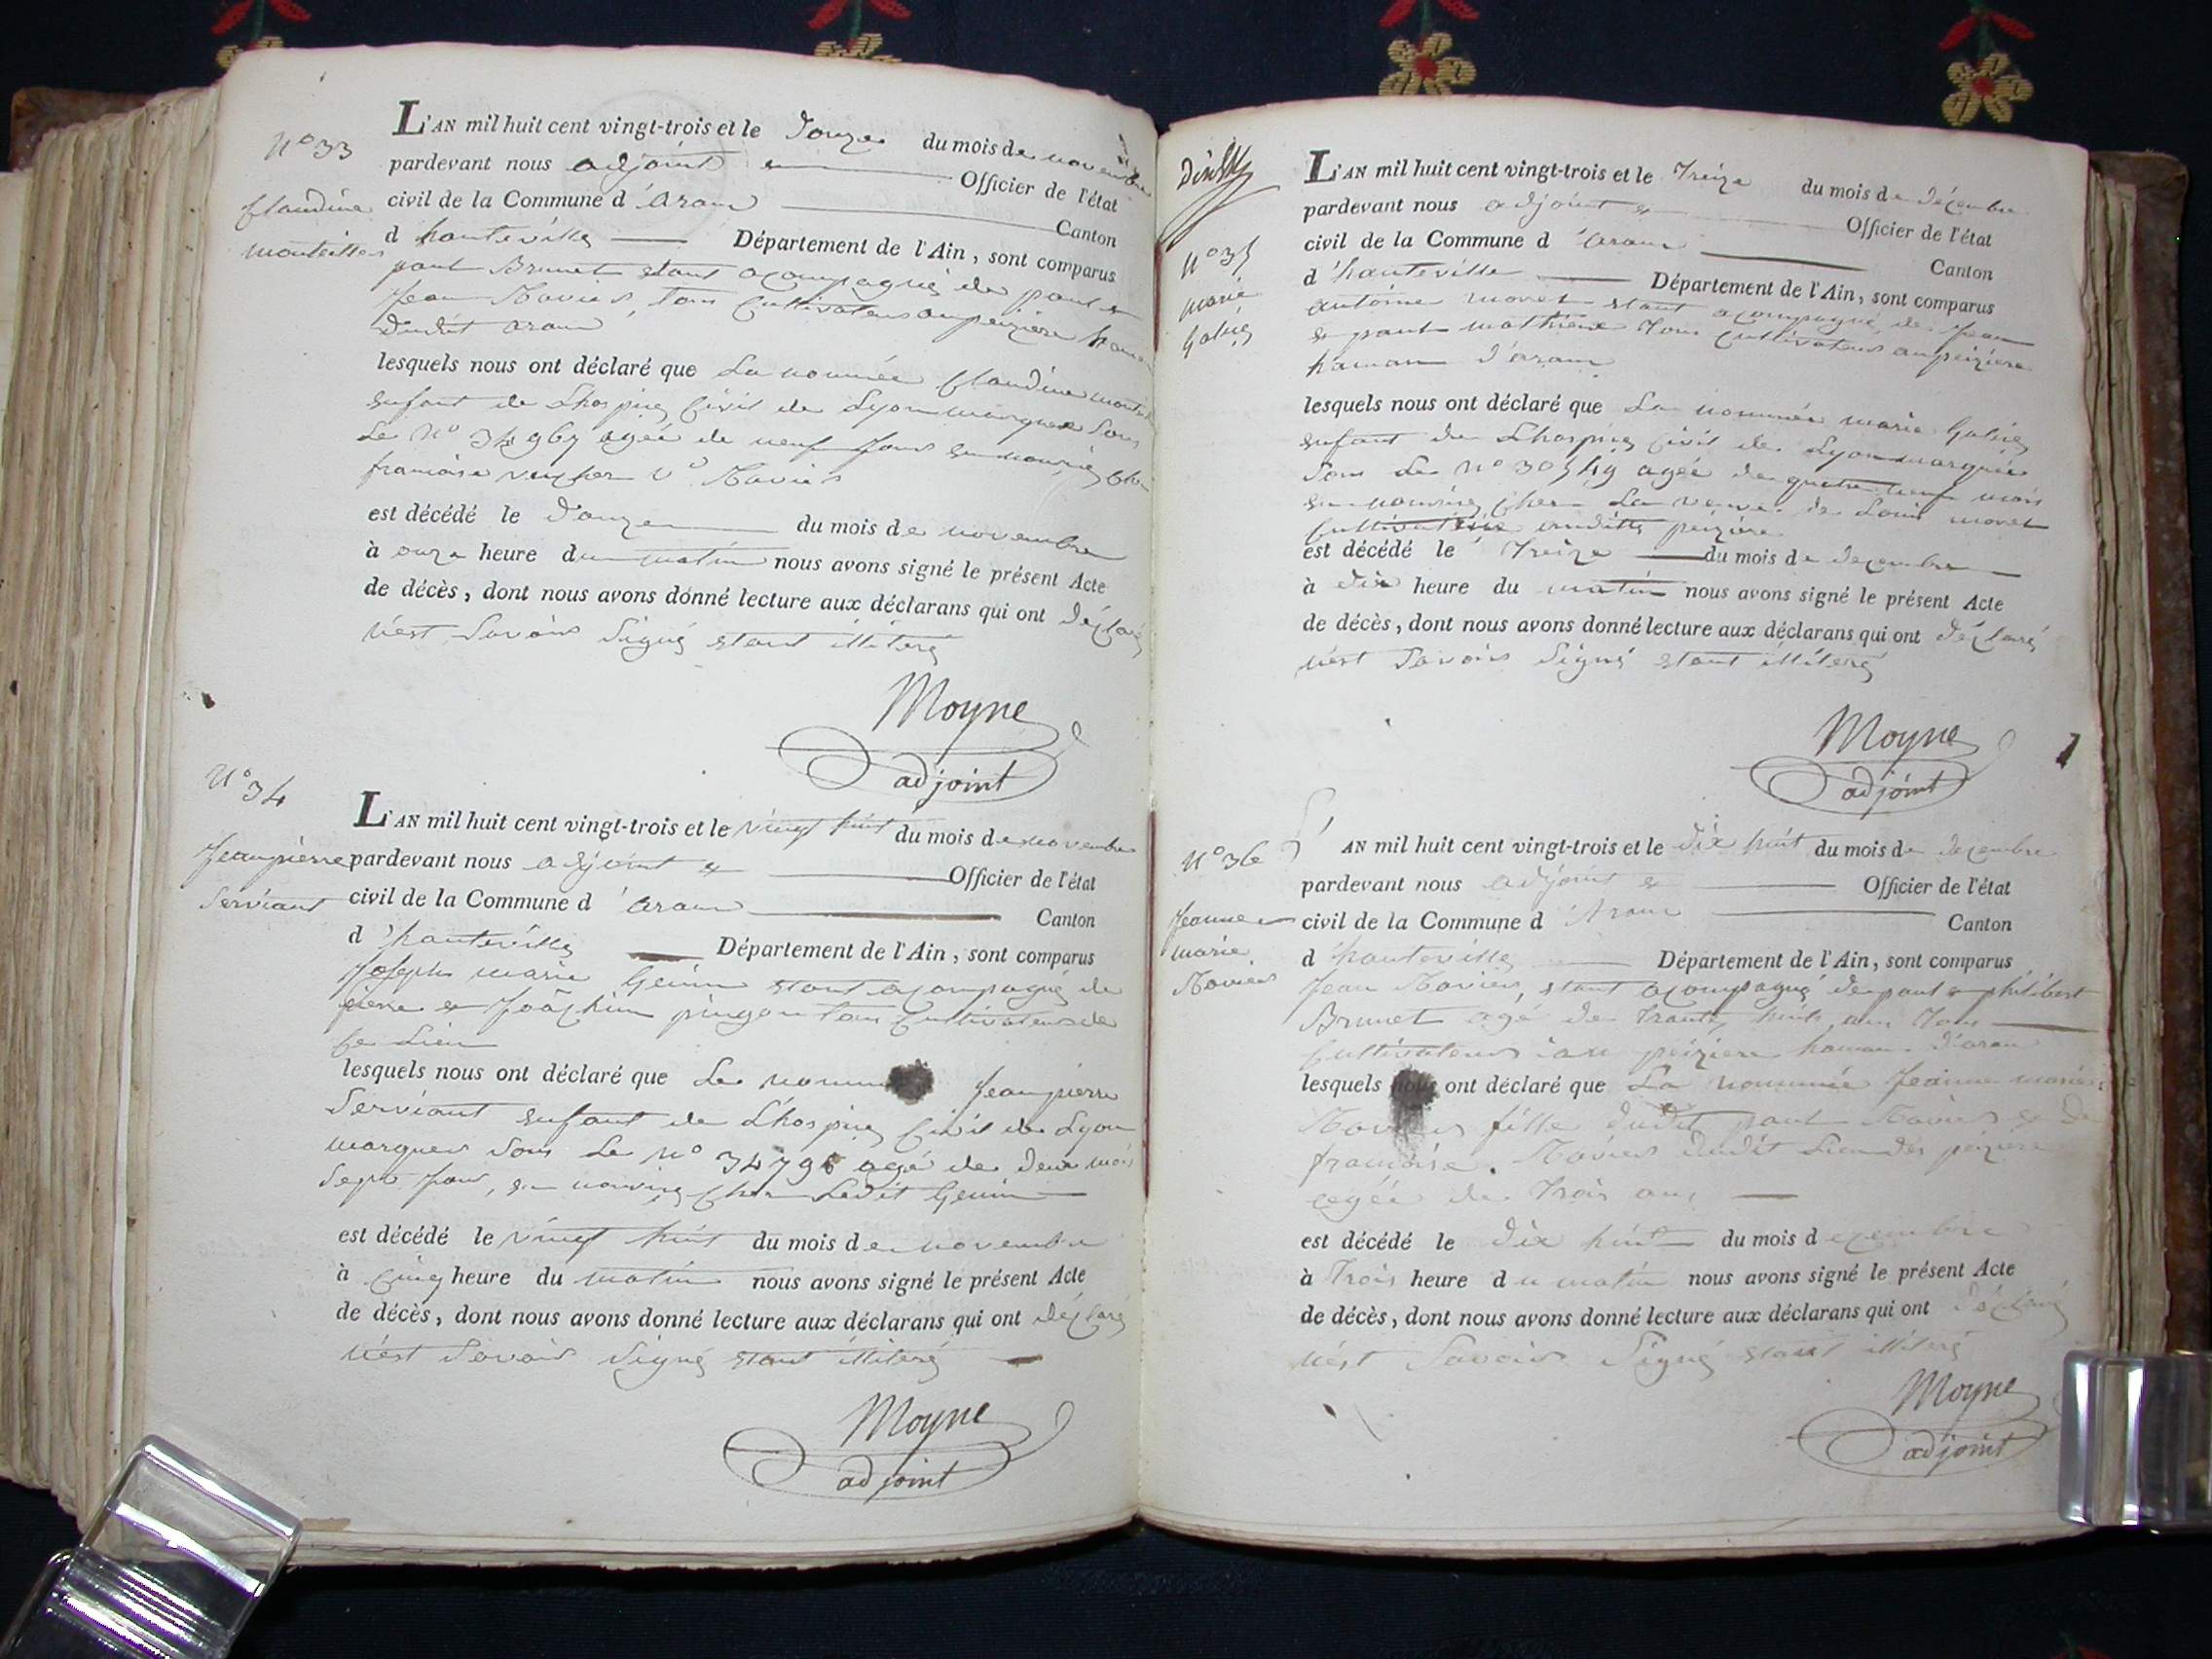 N° 33
Claudine
L'AN mil huit cent vingt-trois et le douze du mois de novembre
pardevant nous adjoint Officier de l'état
civil de la Commune d'aran Canton
d'hauteville Département de l'Ain, sont comparus
paul Brunet etant acompagné de paul et
Jean Tous Cultivateurs
dudit aran
lesquels nous ont déclaré que La nomée Claudine
enfant de Lhospice Civil de Lyon marquee Sous
Le N° 34967 agée de neuf Jours en nourice
francoise
est décédé le douze du mois de novembre
à onze heure du matin nous avons signé le présent Acte
de décès, dont nous avons donné lecture aux déclarans qui ont déclaré
n'est Savoir Signé etant illiteré
Moyne
adjoint
N° 34
Jean pierre
Serviant
L'AN mil huit cent vingt-trois et le vingt huit du mois de novembre
pardevant nous adjoint et Officier de l'état
civil de la Commune d'aran Canton
d'hauteville Département de l'Ain, sont comparus
Joseph marie Genin etant acompagné de
piere et Joachim pingon tous Cultivateurs de
Ce Lieu
lesquels nous ont déclaré que Le nommé Jean pierre
Serviant enfant de Lhospice Civil de Lyon
marquer Sous Le N° agé de deux mois
Sept Jour, en nourice Chez Ledit Genin
est décédé le vingt huit du mois de novembre
à cinq heure du matin nous avons signé le présent Acte
de décès, dont nous avons donné lecture aux déclarans qui ont déclaré
n'est Savoir Signé etant illiteré
Moyne
adjoint
N° 35
marie
L'AN mil huit cent vingt-trois et le Treize du mois de décembre
pardevant nous adjoint et Officier de l'état
civil de la Commune d'aran Canton
d'hauteville Département de l'Ain, sont comparus
antoine etant acompagné de Jean
et paul mathieu Tous Cultivateurs au peiziere
hamau d'aran
lesquels nous ont déclaré que La nommée marie
enfant de Lhospice Civil de Lyon marquée
Sous Le N° agée de quatre mois
en nourice Chez La veuve de Louis
peiziere
est décédé le Treize du mois de decembre
à dix heure du matin nous avons signé le présent Acte
de décès, dont nous avons donné lecture aux déclarans qui ont déclaré
n'est Savoir Signé etant illiteré
Moyne
adjoint
N° 36
Jeanne
marie
L'AN mil huit cent vingt-trois et le dix huit du mois de decembre
pardevant nous adjoint et Officier de l'état
civil de la Commune d'Aran Canton
d'hauteville Département de l'Ain, sont comparus
Jean etant acompagné de paul et philibert
Brunet agé de trante huit ans Tous
Cultivateurs au peiziere hamau d'aran
lesquels nous ont déclaré que La nommée Jeanne marie
fille dudit paul et de
francoise dudit Lieu des peiziere
agée de Trois ans
est décédé le dix huit du mois decembre
à Trois heure du matin nous avons signé le présent Acte
de décès, dont nous avons donné lecture aux déclarans qui ont déclaré
n'est Savoir Signé etant illiteré
Moyne
adjoint